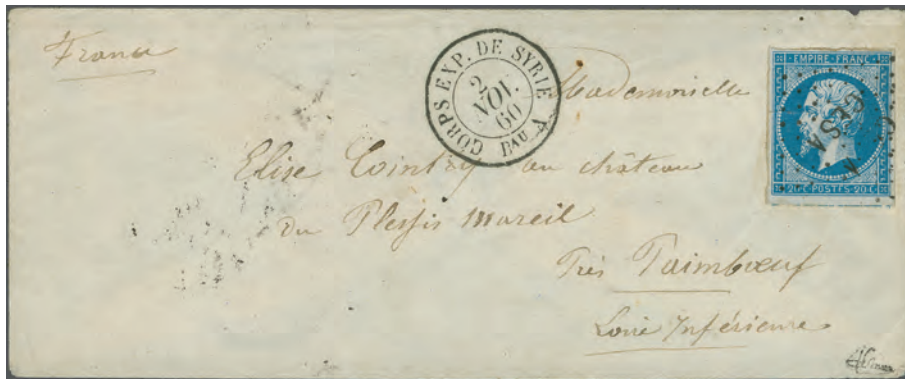 France
CORPS EXP. DE SYRIE
2
NOV.
60
BAU A
EMPIRE FRANC
20 C POSTES 20 C
CESA
Mademoiselle
Elise Cointry au château
du Plessis Mareil
Près Paimbœuf
Loire Inférieure